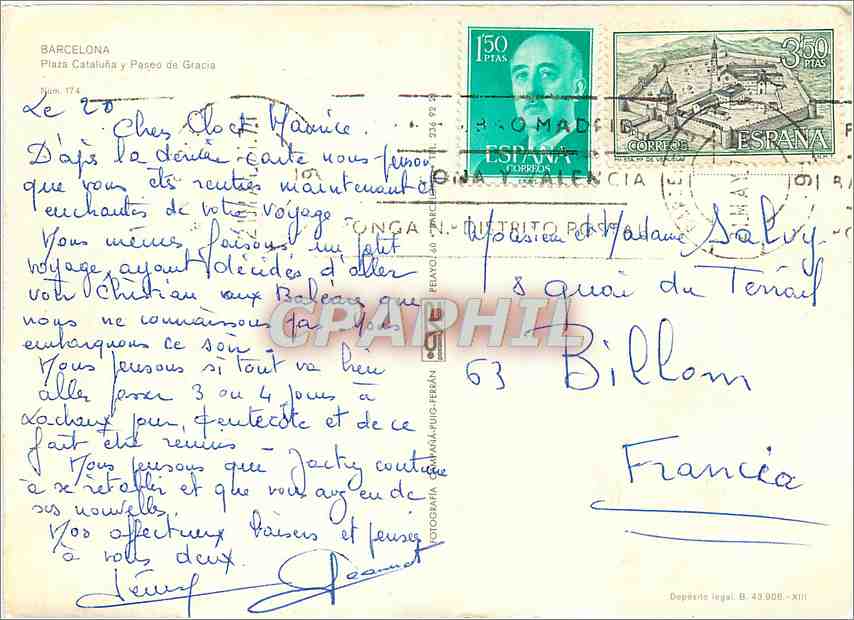 BARCELONA
Plaza Cataluña y Paseo de Gracia
Núm. 174
Le 20
Chers Maurice.
D'après la dernière carte nous pensons
que vous êtes rentrés maintenant et
enchantés de votre voyage -
Nous mêmes faisons un petit
voyage, ayant décidés d'aller
voir Christian aux Baléares que
nous ne connaissons pas Nous
embarquons ce soir -
Nous pensons si tout va bien
aller passer 3 ou 4 jours à
Lachaux pour Pentecôte et de ce
fait être réunis -
Nous pensons que Jacky continue
à se rétablir et que vous avez eu de
ses nouvelles.
Nos affectueux baisers et pensées
à vous deux.
Jeannot
1'50
PTAS
ESPAÑA
CORREOS
3'50
PTAS
CORREOS
ESPAÑA
MADRID
ONA Y VALENCIA
PONGA N.º DISTRITO POSTAL
Monsieur et Madame Salvy
8 quai du Terrail
63 Billom
Francia
FOTOGRAFÍA CAMPAÑÁ-PUIG-FERRÁN
PELAYO, 60 - BARCELONA - TEL. 236 92 2
CPAPHIL
Depósito legal. B. 43.906 - XIII